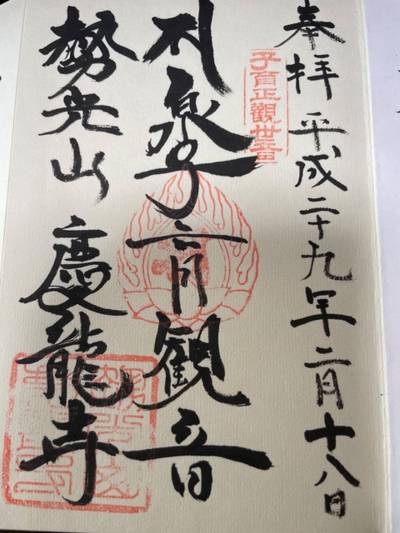 奉拝 平成二十九年二月十八日
子育正觀世音
泉子育観音
勢光山 慶龍寺